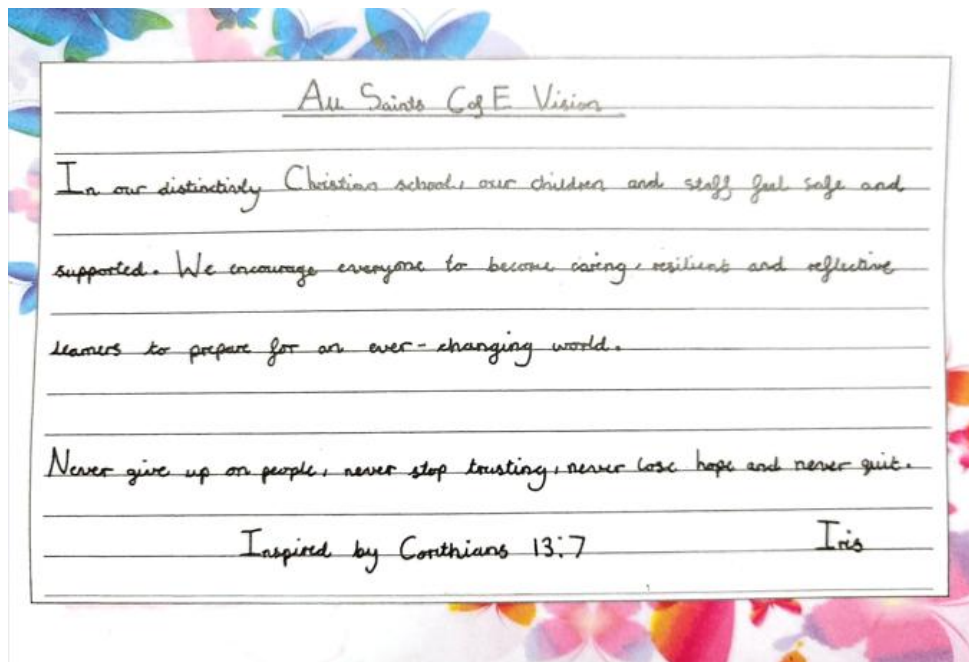 All Saints C of E Vision
In our distinctivly Christian school, our children and staff feel safe and
supported. We encourage everyone to become caring, resilient and reflective
learners to prepare for an ever-changing world.
Never give up on people, never stop trusting, never lose hope and never quit.
Inspired by Corithians 13:7 Iris